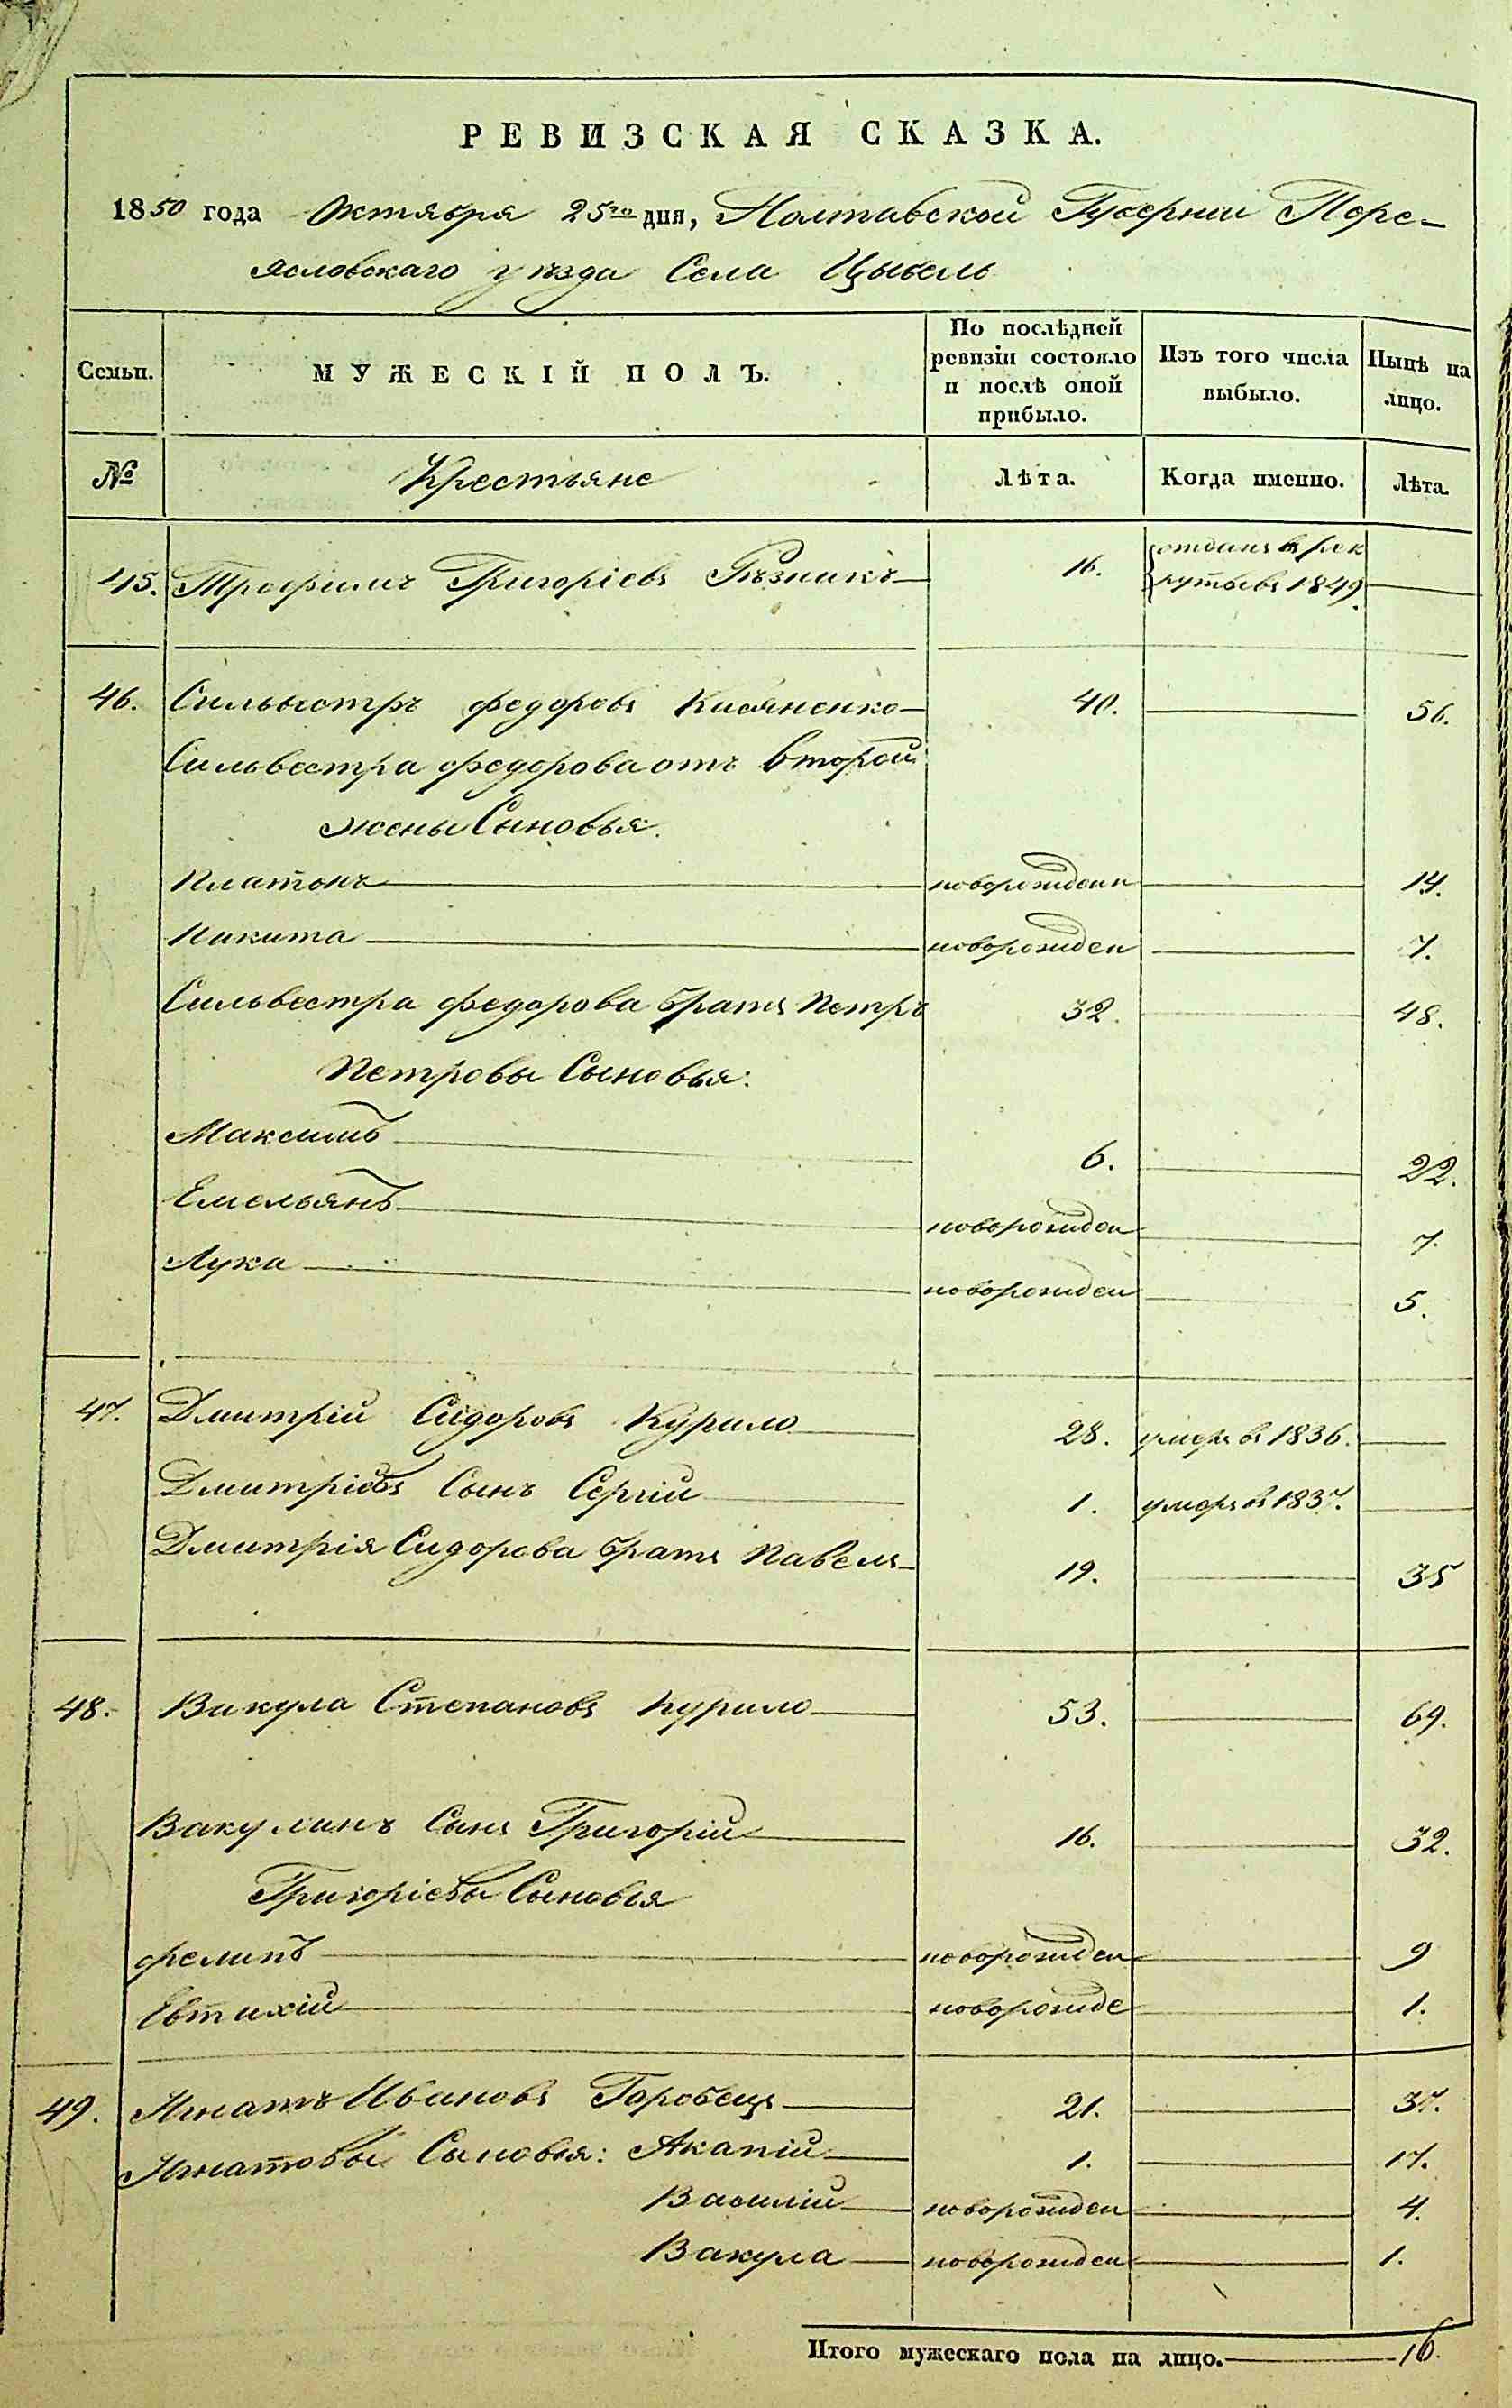 РЕВИЗСКАЯ СКАЗКА.
1850 года Октября 25го дня, Полтавской Губернии Пере-
яславскаго уѣзда Села Цыбель
Семьи.
МУЖЕСКІЙ ПОЛЪ.
По послѣдней
ревизіи состояло
и послѣ оной
прибыло.
Изъ того числа
выбыло.
Нынѣ на
лицо.
№
Крестьяне
Лѣта.
Когда именно.
Лѣта.
45. Трофимъ Григорьевъ Рѣзникъ 16. отданъ в рек
рутывъ 1849.
46. Сильвестръ федоровъ Касяненко 40. 56.
Сильвестра федорова отъ второй
жены Сыновья.
Платонъ новорожденн 14.
Никита новорожден 7.
Сильвестра федорова братъ Петръ 32. 48.
Петровы Сыновья:
Максимъ 6. 22.
Емельянъ новорожден 7.
Лука новорожден 5.
47. Дмитрій Сидоровъ Курило 28. умеръ въ 1836.
Дмитріевъ Сынъ Сергій 1. умеръ въ 1837.
Дмитрія Сидорова братъ Павелъ 19. 35
48. Вакула Степановъ Курило 53. 69.
Вакулинъ Сынъ Григорій 16. 32.
Григоріевы Сыновья
филипъ новорожден 9
Евтихій новорожде 1.
49. Игнатъ Ивановъ Горобецъ 21. 37.
Игнатовы Сыновья: Акапій 1. 17.
Василій новорожден 4.
Вакула новорожден 1.
Итого мужескаго пола на лицо. 16.